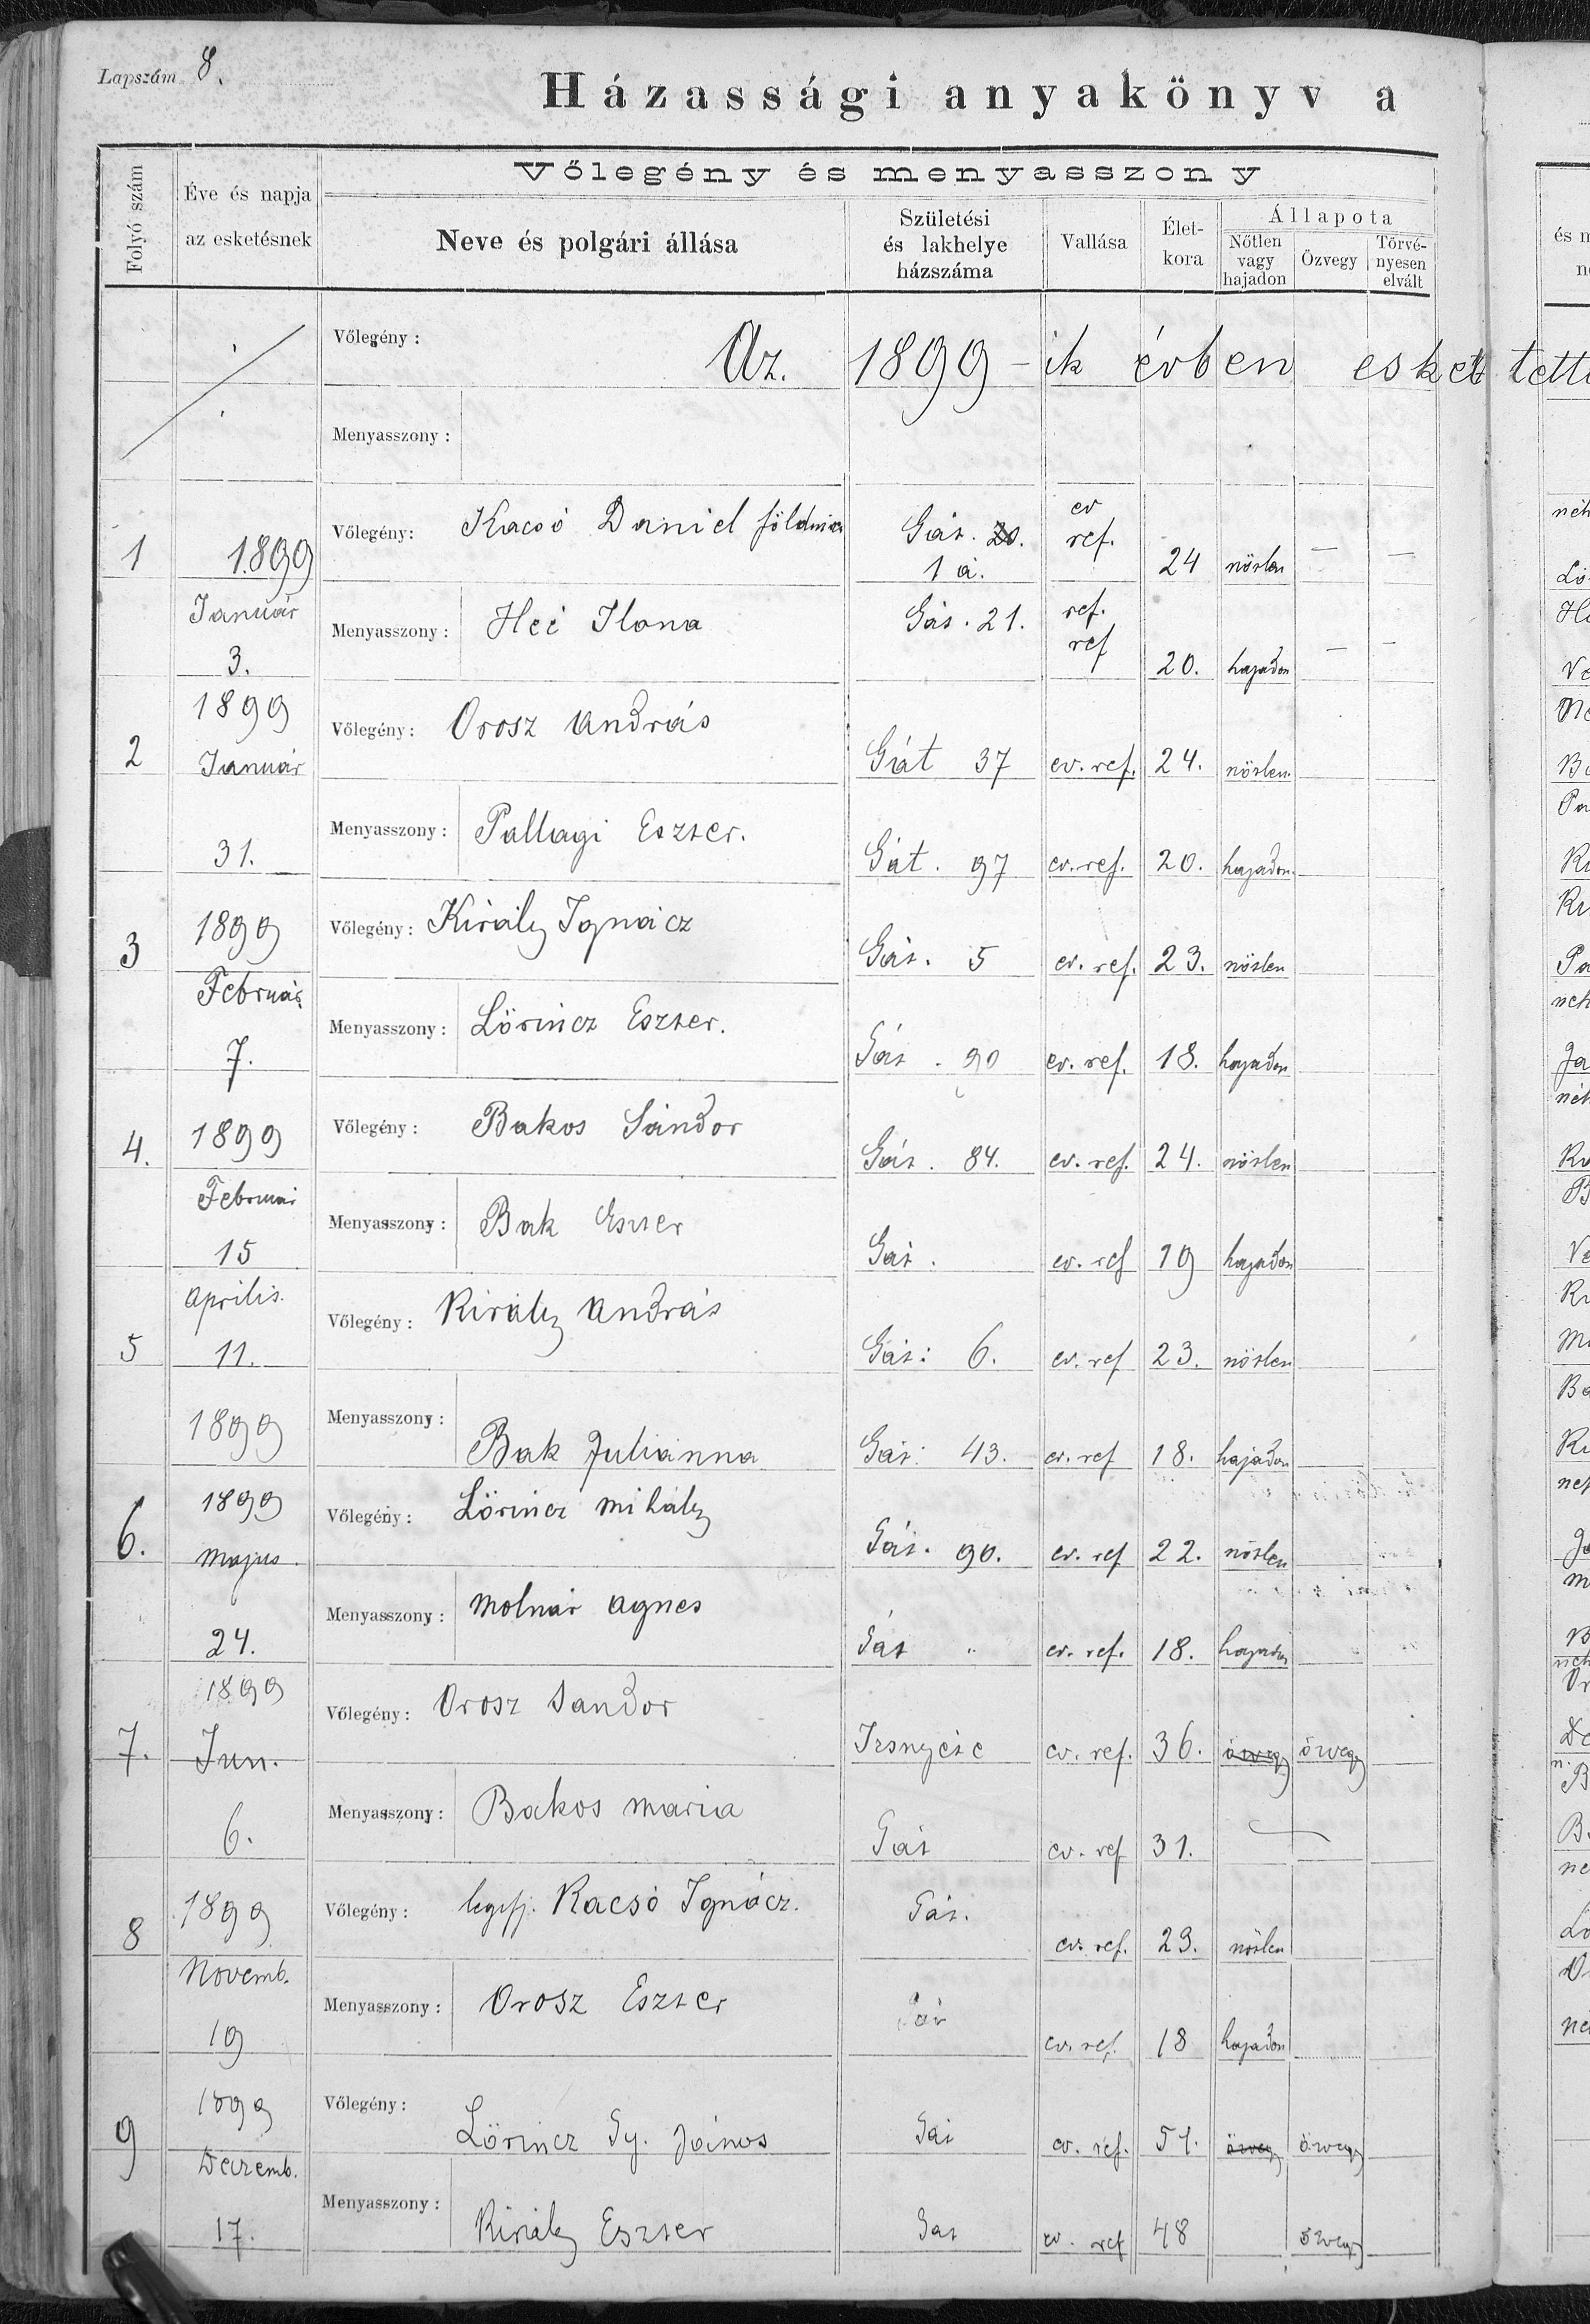 Lapszám 8.
Házassági anyakönyv a
Folyó szám
Éve és napja az esketésnek
Vőlegény és menyasszony
Neve és polgári állása
Születési és lakhelye házszáma
Vallása
Életkora
Állapota
Nőtlen vagy hajadon
Özvegy
Törvényesen elvált
Vőlegény: Az. 1899-ik évben eskettett
Menyasszony:
1 1899 Január 3.
Vőlegény: Kacsó Daniel Gát. 20. 1 a. ev ref. 24 nőtlen — —
Menyasszony: Ilona Gát. 21. ref. ref 20. hajadon — —
2 1899 Január 31.
Vőlegény: Orosz András Gát 37 ev. ref. 24. nőtlen
Menyasszony: Pallagi Eszter. Gát. 97 ev. ref. 20. hajadon
3 1899 Február 7.
Vőlegény: Király Ignácz Gát. 5 ev. ref. 23. nőtlen
Menyasszony: Lörincz Eszter. Gát. 90 ev. ref. 18. hajadon
4. 1899 Februái 15
Vőlegény: Bakos Sándor Gát. 84. ev. ref. 24. nőtlen
Menyasszony: Bak Eszter Gát. ev. ref 19 hajadon
5 Aprilis. 11. 1899
Vőlegény: Király András Gát: 6. ev. ref 23. nőtlen
Menyasszony: Bak Juliánna Gát: 43. ev. ref 18. hajadon
6. 1899 Majus. 24.
Vőlegény: Lörincz Mihály Gát. 90. ev. ref 22. nőtlen
Menyasszony: Molnár Agnes Gát " ev. ref. 18. hajadon
7. 1899 Jun. 6.
Vőlegény: Orosz Sandor ev. ref. 36. özvegy özvegy
Menyasszony: Bakos Maria Gát ev. ref 31.
8 1899 Novemb. 19
Vőlegény: Kacsó Ignácz. Gát. ev. ref. 23. nőtlen
Menyasszony: Orosz Eszter Gát ev. ref. 18 hajadon
9 1899 Deczemb. 17.
Vőlegény: Lörincz Gy. János Gát ev. ref. 51. özvegy özvegy
Menyasszony: Király Eszter Gat ev. ref 48 özvegy